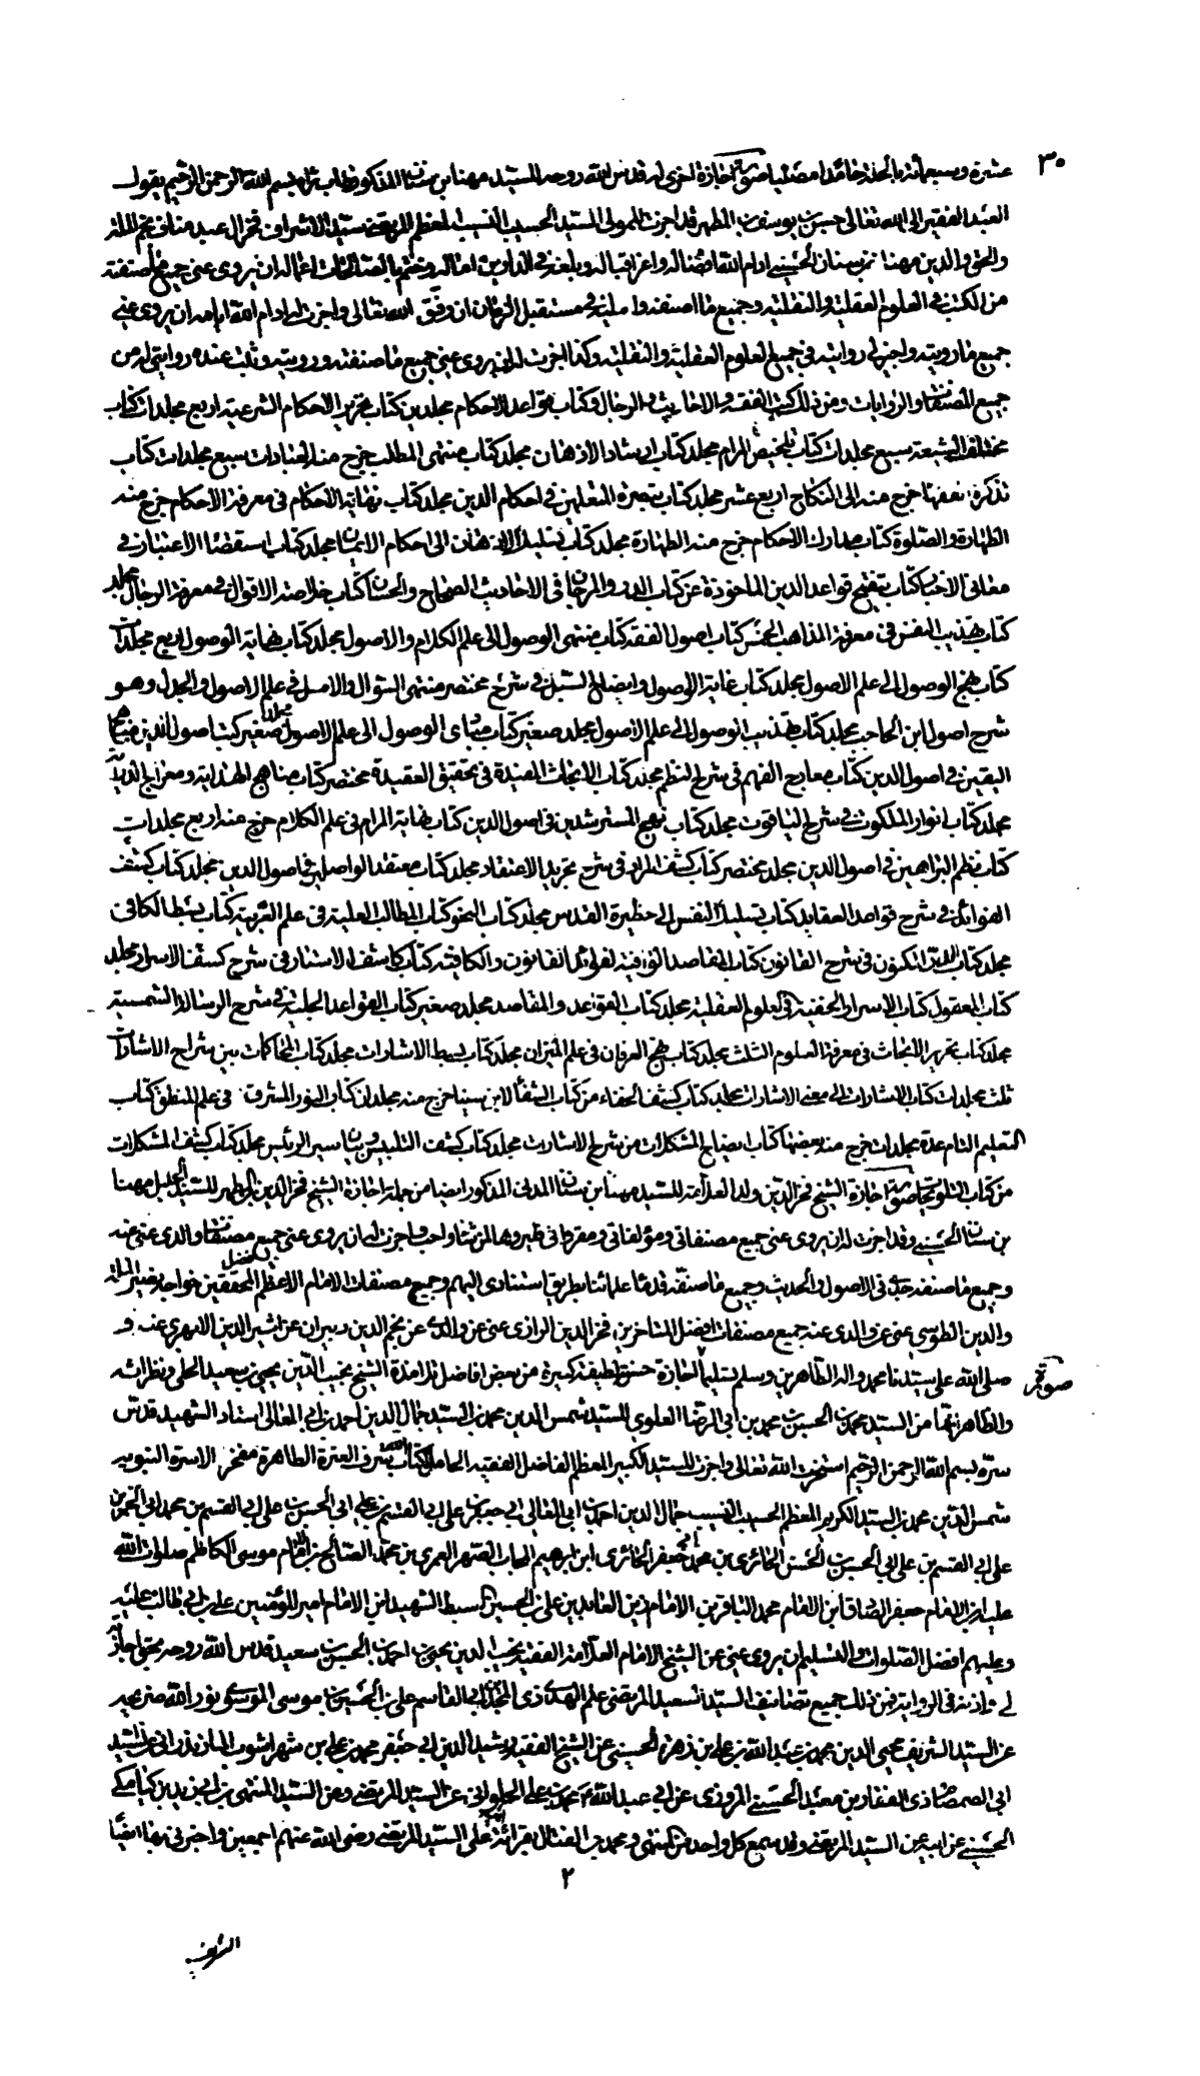 ٣٠
عشرة وسبعمائة بالحلة حامدا مصليا صورة اجازة اخرى له قدس الله روحه للسيد مهنا بن سنان المذكور طاب ثراه بسم الله الرحمن الرحيم يقول
العبد الفقير الى الله تعالى حسن بن يوسف بن المطهر قد اجزت للمولى السيد الحسيب النسيب المعظم المرتضى سيد الاشراف فخر آل عبد مناف نجم الملة
والحق والدين مهنا بن سنان الحسيني ادام الله افضاله واعز اقباله وبلغه في الدارين اماله وختم بالصالحات اعماله ان يروي عني جميع ما صنفته
من الكتب في العلوم العقلية والنقلية وجميع ما اصنفه واملية في مستقبل الزمان ان وفق الله تعالى واجزت له ادام الله ايامه ان يروي عني
جميع ما رويته واجيز لي روايته في جميع العلوم العقلية والنقلية وكذا اجزت له ان يروي عني جميع ما صنفته ورويته وثبت عنده روايتي له من
جميع المصنفات والروايات ومن ذلك كتب الفقه والاحاديث والرجال وكتاب قواعد الاحكام مجلدين كتاب تحرير الاحكام الشرعية اربع مجلدات كتاب
مختلف الشيعة سبع مجلدات كتاب تلخيص المرام مجلد كتاب ارشاد الاذهان مجلد كتاب منتهى المطلب خرج منه العبادات سبع مجلدات كتاب
تذكرة الفقهاء خرج منه الى النكاح اربع عشر مجلد كتاب تبصرة المتعلمين في احكام الدين مجلد كتاب نهاية الاحكام في معرفة الاحكام خرج منه
الطهارة والصلوة كتاب مدارك الاحكام خرج منه الطهارة مجلد كتاب تسليك الاذهان الى احكام الايمان مجلد كتاب استقصاء الاعتبار في
معاني الاخبار كتاب تنقيح قواعد الدين الماخوذة عن كتاب الدر والمرجان في الاحاديث الصحاح والحسان كتاب خلاصة الاقوال في معرفة الرجال مجلد
كتاب تهذيب النفس في معرفة المذاهب الخمس كتاب اصول الفقه كتاب منتهى الوصول الى علم الكلام والاصول مجلد كتاب نهاية الوصول اربع مجلدات
كتاب نهج الوصول الى علم الاصول مجلد كتاب غاية الوصول وايضاح السبل في شرح مختصر منتهى السؤال والامل في علم الاصول والجدل وهو
شرح اصول ابن الحاجب مجلد كتاب تهذيب الوصول الى علم الاصول مجلد صغير كتاب مبادي الوصول الى علم الاصول مجلد صغير كتب اصول الدين مناهج
اليقين في اصول الدين كتاب معارج الفهم في شرح النظم مجلد كتاب الابحاث المفيدة في تحقيق العقيدة مختصر كتاب مناهج الهداية ومعراج الدراية
مجلد كتاب انوار الملكوت في شرح الياقوت مجلد كتاب نهج المسترشدين في اصول الدين كتاب نهاية المرام في علم الكلام خرج منه اربع مجلدات
كتاب نظم البراهين في اصول الدين مجلد مختصر كتاب كشف المراد في شرح تجريد الاعتقاد مجلد كتاب معتقد الواصلين في اصول الدين مجلد كتاب كشف
الفوائد في شرح قواعد العقايد كتاب تسليك النفس الى حظيرة القدس مجلد كتاب النحو كتاب المطالب العلية في علم العربية كتاب بسط الكافي
مجلد كتاب الدر المكنون في شرح القانون كتاب المقاصد الوافية لفوائد القانون والكافية كتاب كاشف الاستار في شرح كشف الاسرار مجلد
كتاب المعقول كتاب الاسرار الخفية في العلوم العقلية مجلد كتاب القواعد والمقاصد مجلد صغير كتاب القواعد الجلية في شرح الرسالة الشمسية
مجلد كتاب تحرير الابحاث في معرفة العلوم الثلث مجلد كتاب نهج العرفان في علم الميزان مجلد كتاب بسط الاشارات مجلد كتاب المحاكمات بين شراح الاشارات
ثلث مجلدات كتاب الاشارات الى معنى الاشارات مجلد كتاب كشف الخفاء من كتاب الشفاء لابن سينا خرج منه مجلدان كتاب النور المشرق في علم المنطق كتاب
التعليم التام عدة مجلدات خرج منه بعضها كتاب ايضاح المشكلات من شرح الاشارات مجلد كتاب كشف التلبيس وبيان سير الرئيس مجلد كتاب كشف المشكلات
من كتاب التلويحات صورة اجازة الشيخ فخر الدين ولد العلامة للسيد مهنا بن سنان المدني المذكور ايضا من جملة اجازة الشيخ فخر الدين بن المطهر للسيد الجليل مهنا
بن سنان الحسيني وقد اجزت له ان يروي عني جميع مصنفاتي ومؤلفاتي ومقرواتي فليروها لمن شاء واحب واجزت له ان يروي عني جميع مصنفات والدي عني عنه
وجميع ما صنفه جدي في الاصول والحديث وجميع ما صنفه قدماء علمائنا بطريق استنادي اليهم وجميع مصنفات الامام الاعظم افضل المحققين خواجه نصير الملة
والدين الطوسي عني عن والدي عنه جميع مصنفات افضل المتاخرين فخر الدين الرازي عني عن والدي عن نجم الدين دبيران عن اثير الدين الابهري عنه و
صلى الله على سيدنا محمد واله الطاهرين وسلم تسليما اجازة حسنة لطيفة كبيرة من بعض افاضل تلامذة الشيخ نجيب الدين يحيى بن سعيد الحلي ونظرائه
صورة
والظاهر انها من السيد محمد بن الحسين بن محمد بن ابي الرضا العلوي للسيد شمس الدين محمد بن السيد جمال الدين احمد بن ابي المعالي استاد الشهيد قدس
سره بسم الله الرحمن الرحيم استخرت الله تعالى واجزت للسيد الكبير المعظم الفاضل الفقيه الحامل لكتاب الله شرف العترة الطاهرة مفخر الاسرة النبوية
شمس الدين محمد بن السيد الكبير المعظم الحسيب النسيب جمال الدين احمد بن ابي المعالي ابي جعفر بن علي ابي القسم بن علي ابي الحسن بن علي ابي القسم بن محمد ابي الحسن بن
علي ابي القسم بن علي ابي الحسن بن الحسن الحائري بن محمد ابي جعفر الحائري ابن ابراهيم المجاب الصهر العمري بن محمد الصالح بن الامام موسى الكاظم صلوات الله
عليه ابن الامام جعفر الصادق ابن الامام محمد الباقر بن الامام زين العابدين علي بن الحسين السبط الشهيد ابن الامام امير المؤمنين علي بن ابي طالب عليه
وعليهم افضل الصلوات والتسليم ان يروي عني عن الشيخ الامام العلامة الفقيه نجيب الدين يحيى بن احمد بن الحسن بن سعيد قدس الله روحه بحق اجازته
لي واذنه في الرواية فمن ذلك جميع تصانيف السيد السعيد المرتضى علم الهدى ذي المجدين ابي القاسم علي بن الحسين بن موسى الموسوي نور الله ضريحه
عن السيد الشريف محيي الدين محمد بن عبد الله بن علي بن زهرة الحسيني عن الشيخ الفقيه رشيد الدين ابي جعفر محمد بن علي بن شهراشوب المازندراني عن السيد
ابي الصمصام ذي الفقار بن معبد الحسيني المروزي عن ابي عبد الله محمد بن علي الحلواني عن السيد المرتضى وعن السيد المنتهى بن ابي زيد بن كيابكي
الحسيني عن ابيه عن السيد المرتضى وقد سمع كل واحد من المنتهى ومحمد بن الفتال بقراءة ابيه على السيد المرتضى رضي الله عنهم اجمعين واخبرني بها ايضا
٢
الشريف